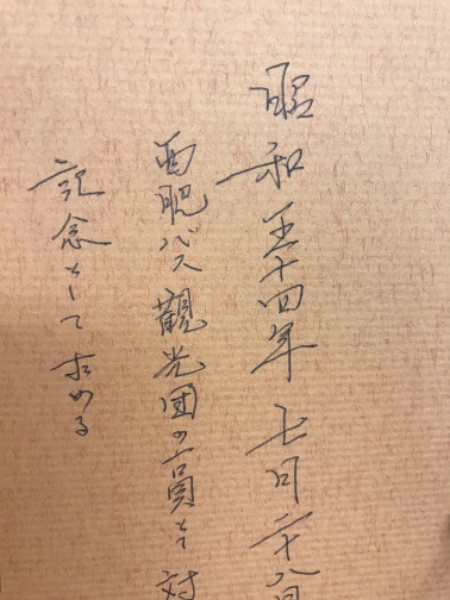 昭和五十四年七月二十八日
西肥バス観光団の一員として対
記念として求める